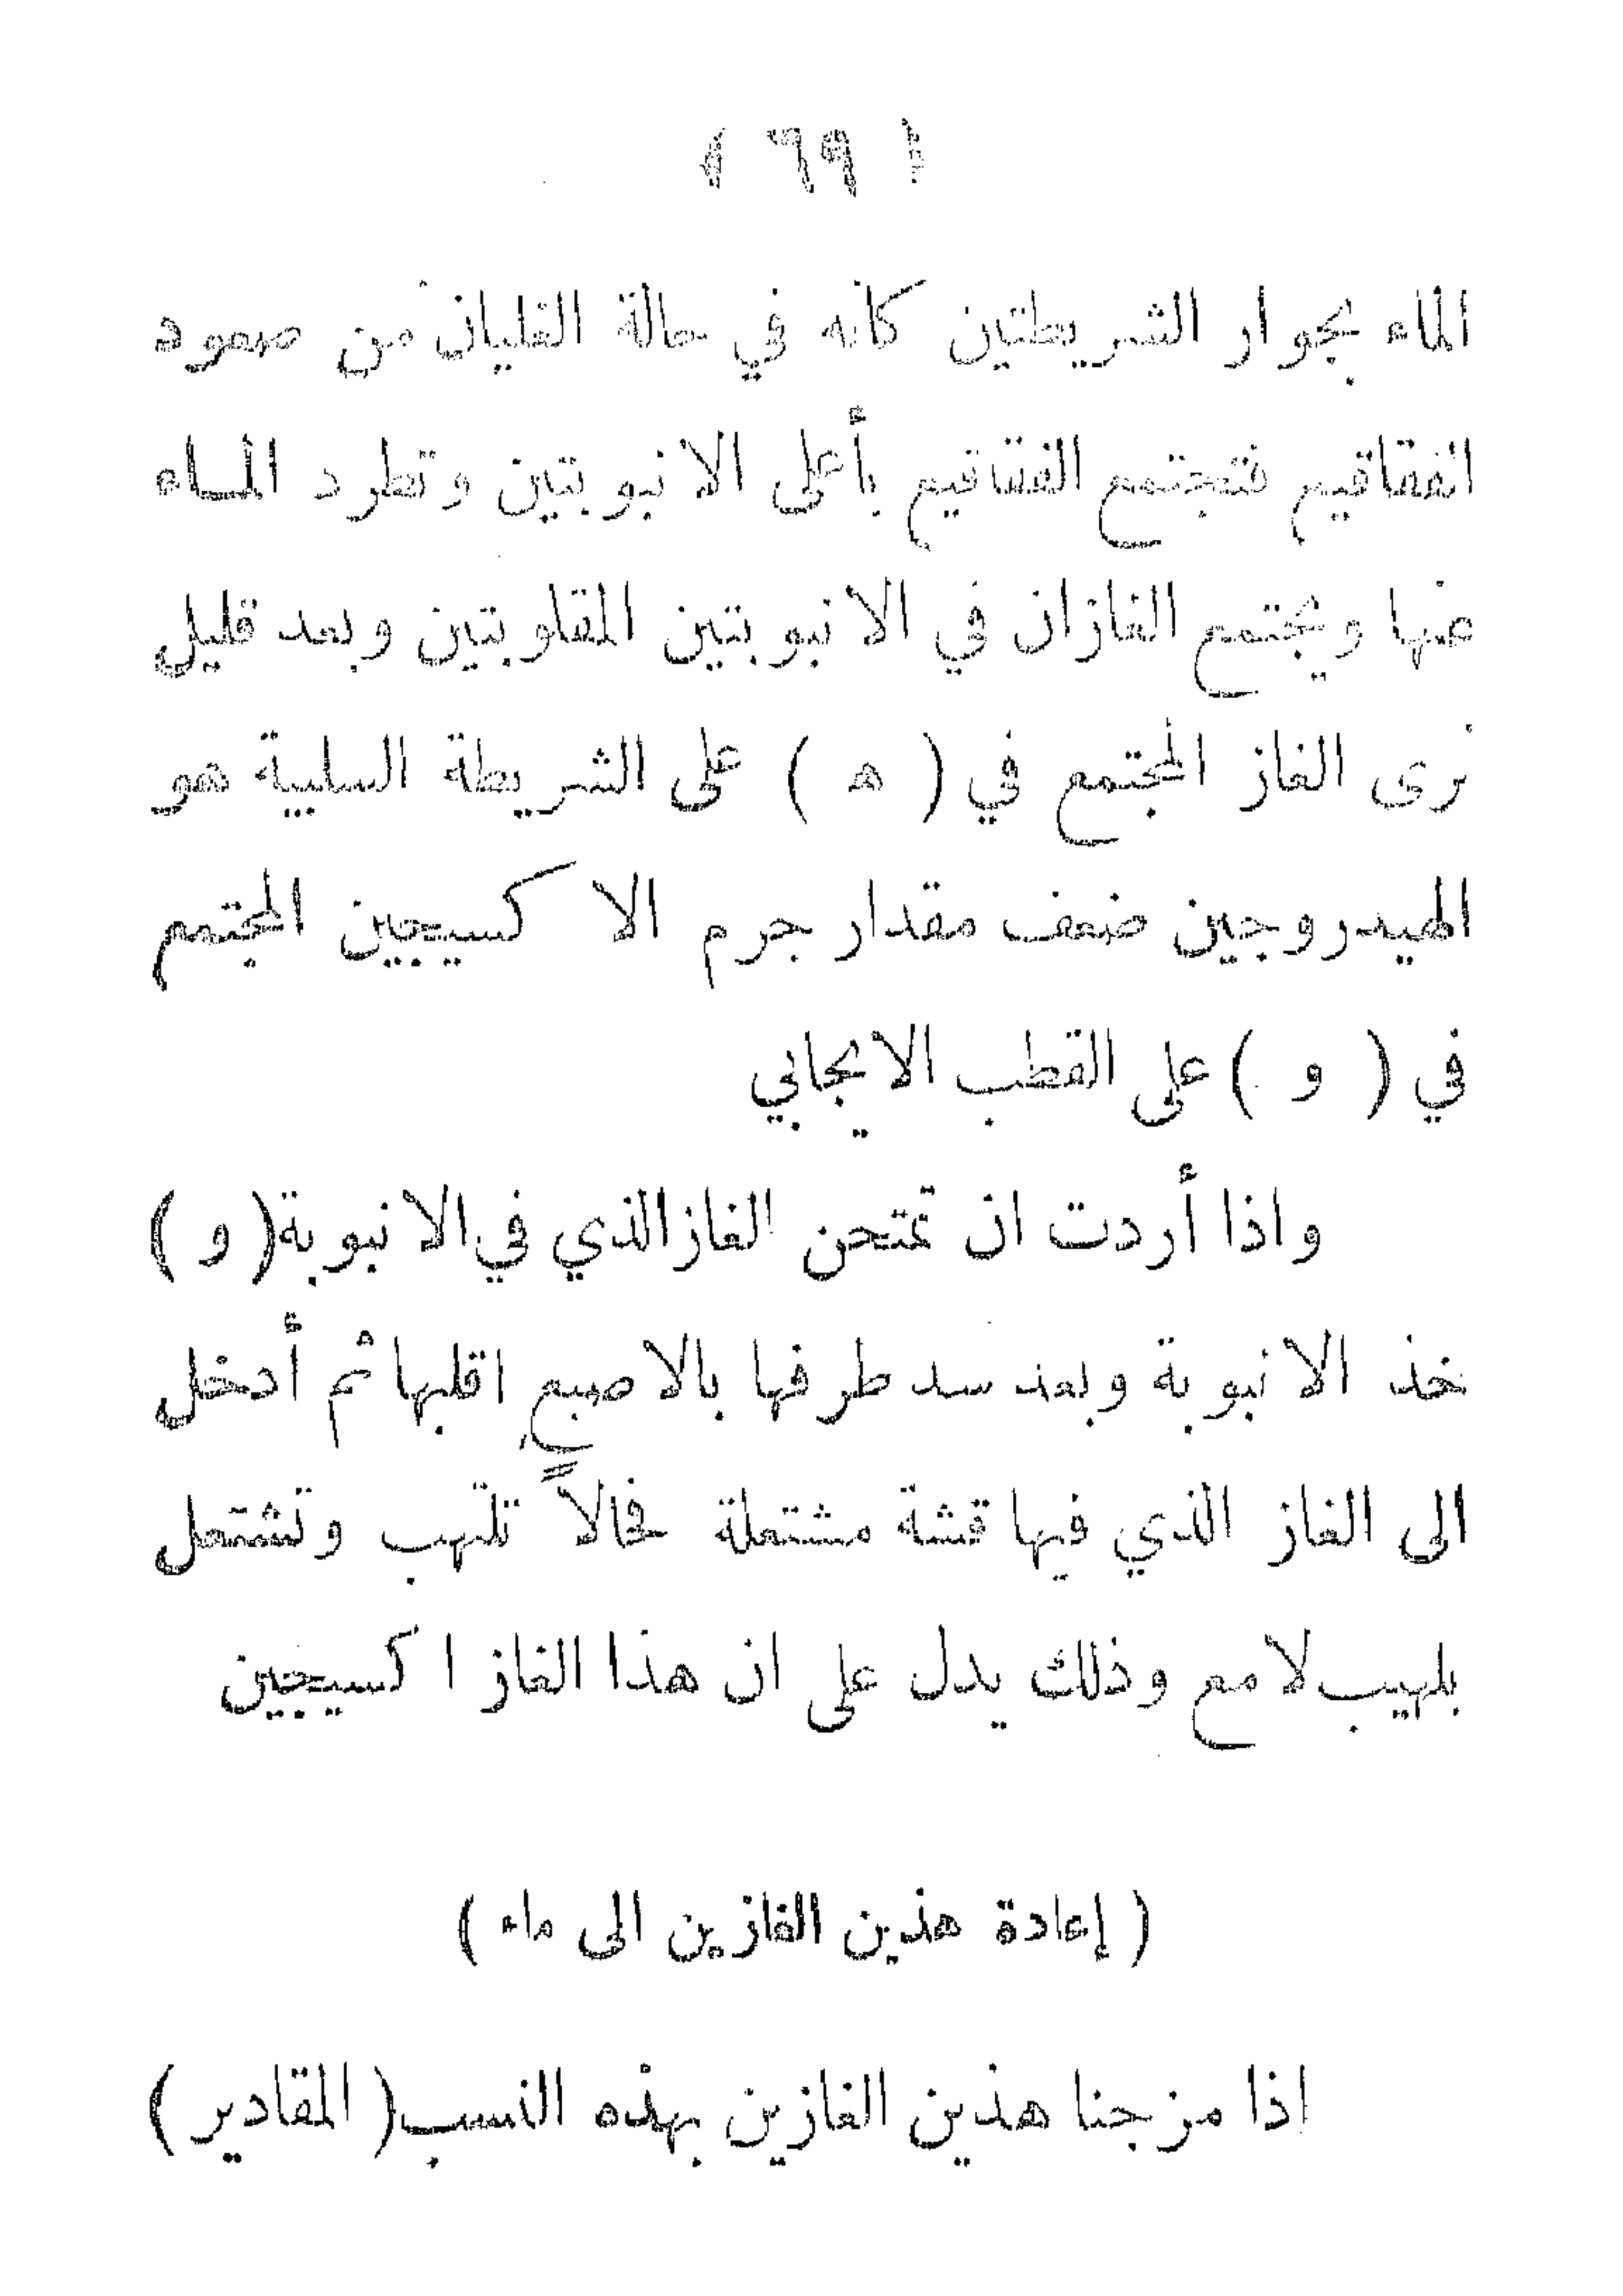 ( ٦٩ )
الماء بجوار الشريطتين كانه في حالة الغليان من صعود
الفقاقيع فتجتمع الفقاقيع بأعلى الانبوبتين وتطرد الماء
منها ويجتمع الغازان في الانبوبتين المقلوبتين وبعد قليل
نرى الغاز المجتمع في ( ه ) على الشريطة السلبية هو
الهيدروجين ضعف مقدار جرم الاكسيجين المجتمع
في ( و ) على القطب الايجابي
واذا أردت ان تمتحن الغاز الذي في الانبوبة ( و )
خذ الانبوبة وبعد سد طرفها بالاصبع اقلبها ثم أدخل
الى الغاز الذي فيها قشة مشتعلة فحالاً تلتهب وتشتعل
بلهيب لامع وذلك يدل على ان هذا الغاز اكسيجين
( إعادة هذين الغازين الى ماء )
اذا مزجنا هذين الغازين بهذه النسب ( المقادير )